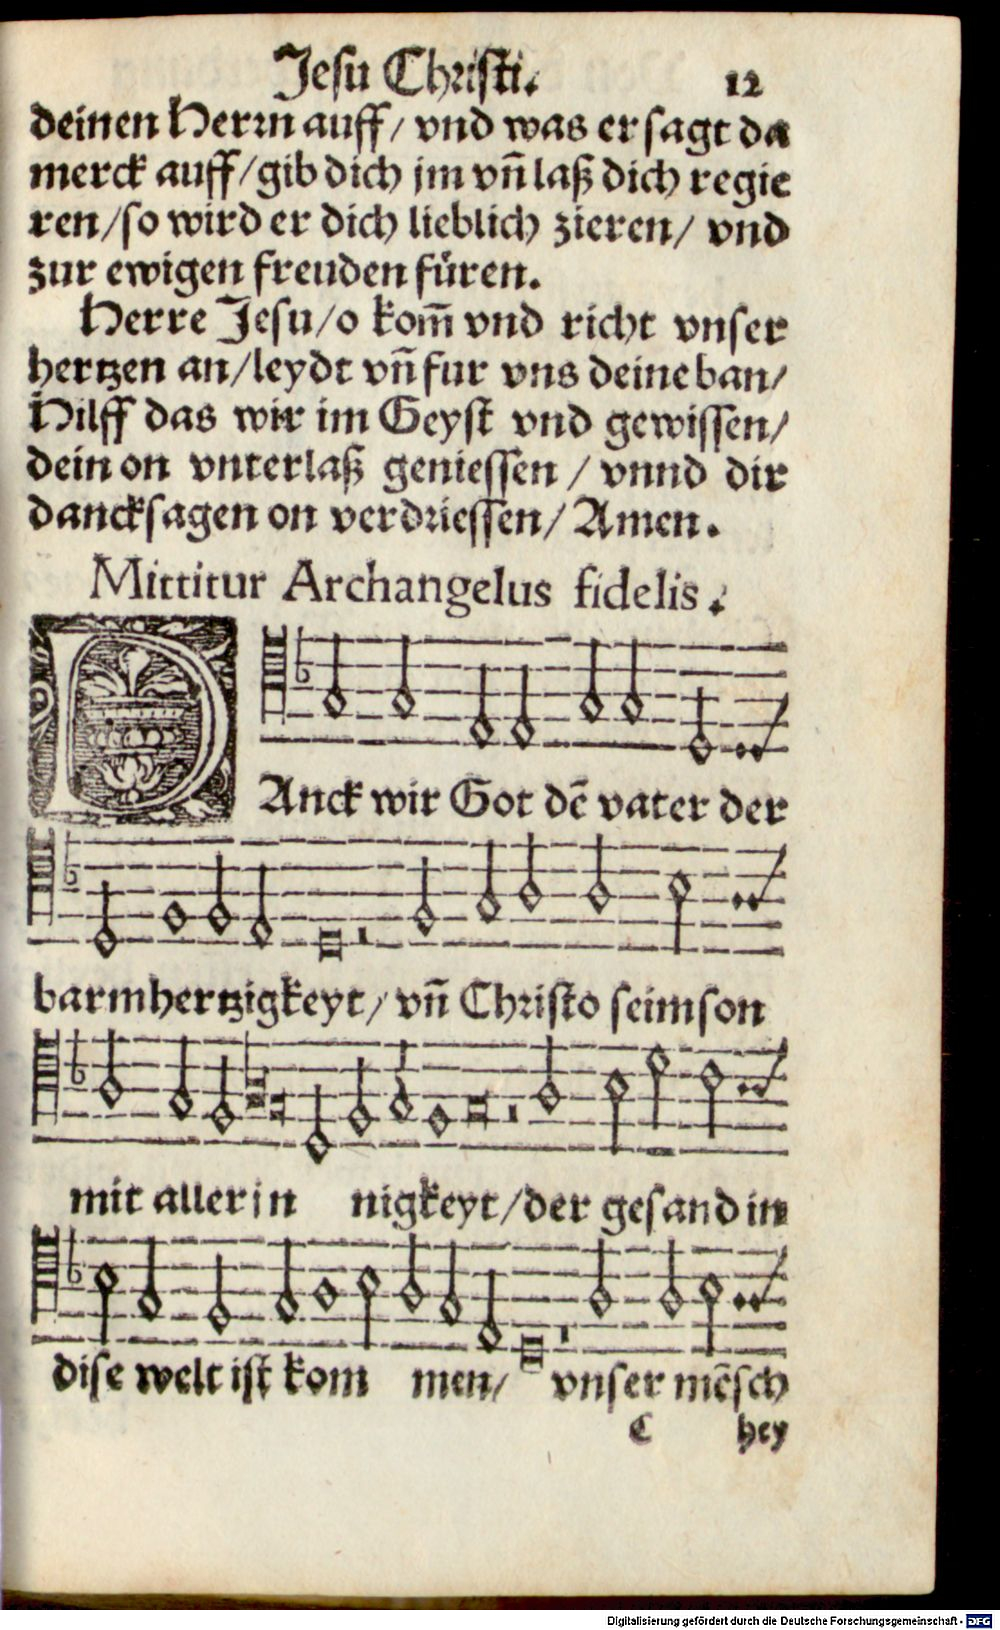 Jesu Christi. 12
deinen Herrn auff/ vnd was er sagt da
merck auff/ gib dich jm vñ laß dich regie
ren/ so wird er dich lieblich zieren/ vnd
zur ewigen freuden füren.
Herre Jesu/ o kom̄ vnd richt vnser
hertzen an/ leydt vñ fur vns deine ban/
Hilff das wir im Geyst vnd gewissen/
dein on vnterlaß geniessen / vnnd dir
dancksagen on verdriessen/ Amen.
Mittitur Archangelus fidelis.
DAnck wir Got dē vater der
barmhertzigkeyt/ vñ Christo seim son
mit aller in nigkeyt/ der gesand in
dise welt ist kom men/ vnser mēsch
C hey
Digitalisierung gefördert durch die Deutsche Forschungsgemeinschaft - DFG